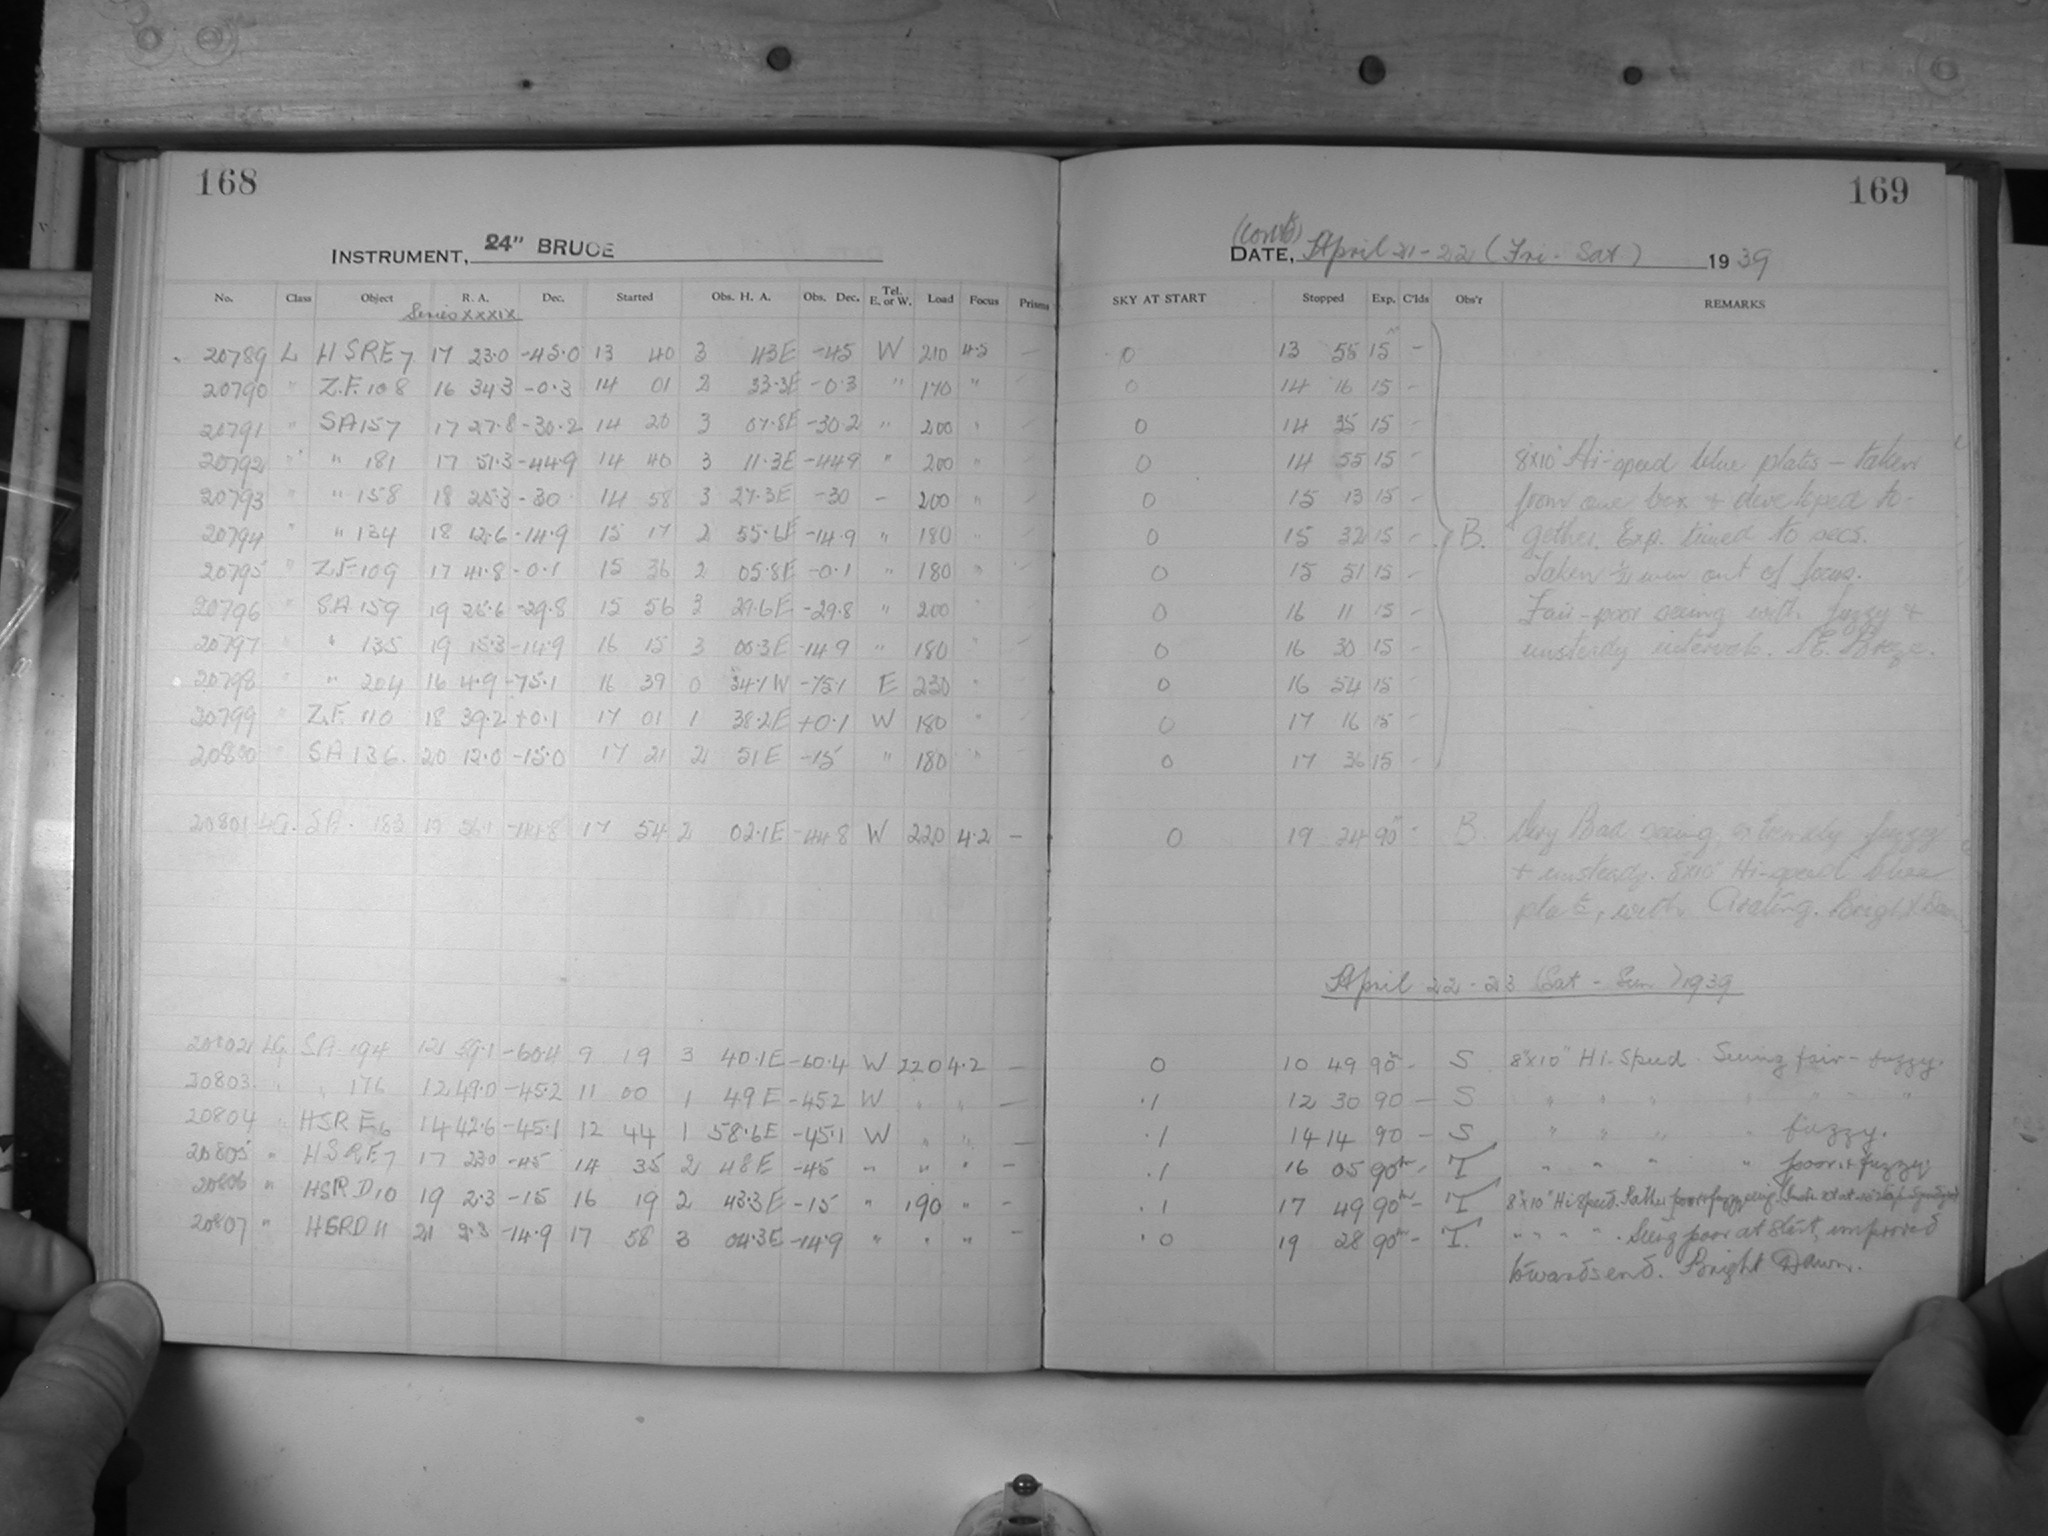 168
INSTRUMENT, 24" BRUCE
No. Class Object R. A. Dec. Started Obs. H. A. Obs. Dec. Tel. E. or W. Load Focus Prisms
Series XXXIX
20789 L HSRE7 17 23.0 -45.0 13 40 3 43E -45 W 210 4.2 -
20790 " Z.F. 108 16 34.3 -0.3 14 01 2 33.3E -0.3 " 170 "
20791 " SA 157 17 27.8 -30.2 14 20 3 07.8E -30.2 " 200 "
20792 " " 181 17 51.3 -44.9 14 40 3 11.3E -44.9 " 200 "
20793 " " 158 18 25.3 -30 14 58 3 27.3E -30 - 200 "
20794 " " 134 18 12.6 -14.9 15 17 2 55.6E -14.9 " 180 "
20795 " Z.F. 109 17 41.8 -0.1 15 36 2 05.8E -0.1 " 180 "
20796 " SA 159 19 25.6 -29.8 15 56 3 29.6E -29.8 " 200 "
20797 " " 135 19 15.3 -14.9 16 15 3 00.3E -14.9 " 180
20798 " " 204 16 4.9 -75.1 16 39 0 34.1W -75.1 E 230 "
20799 " Z.F. 110 18 39.2 +0.1 17 01 1 38.2E +0.1 W 180 "
20800 " SA 136 20 12.0 -15.0 17 21 2 51E -15 " 180 "
20801 LG. SA. 183 19 56.1 -44.8 17 54 2 02.1E -44.8 W 220 4.2 -
20802 LG SA. 194 12 59.1 -60.4 9 19 3 40.1E -60.4 W 220 4.2 -
20803 " " 176 12 49.0 -45.2 11 00 1 49E -45.2 W " " -
20804 " HSR E6 14 42.6 -45.1 12 44 1 58.6E -45.1 W " " -
20805 " HSRE7 17 23.0 -45 14 35 2 48E -45 " " " -
20806 " HSR D10 19 2.3 -15 16 19 2 43.3E -15 " 190 " -
20807 " HSRD 11 21 2.3 -14.9 17 58 3 04.3E -14.9 " " " -
169
(cont'd)
DATE, April 21-22 (Fri - Sat) 1939
SKY AT START Stopped Exp. C'lds Obs'r REMARKS
0 13 55 15m -
0 14 16 15 -
0 14 35 15 -
0 14 55 15 - 8x10" Hi-speed blue plates - taken
0 15 13 15 - from one box + developed to-
0 15 32 15 - B. gether. Exp. timed to secs.
0 15 51 15 - Taken ½ mm out of focus.
0 16 11 15 - Fair-poor seeing with fuzzy +
0 16 30 15 - unsteady intervals. S.E. Breeze.
0 16 54 15 -
0 17 16 15 -
0 17 36 15 -
0 19 24 90m - B. Very Bad seeing, extremely fuzzy
+ unsteady. 8x10" Hi-speed blue
plate, with Grating. Bright Dawn
April 22-23 (Sat - Sun) 1939
0 10 49 90m - S 8"x10" Hi-Speed. Seeing fair - fuzzy.
.1 12 30 90 - S " " " " " "
.1 14 14 90 - S " " " " fuzzy.
.1 16 05 90m - T " " " " poor + fuzzy.
.1 17 49 90m - T 8"x10" Hi Speed. Rather poor + fuzzy seeing.
.0 19 28 90m - T. " " " " Seeing poor at start, improved
towards end. Bright Dawn.